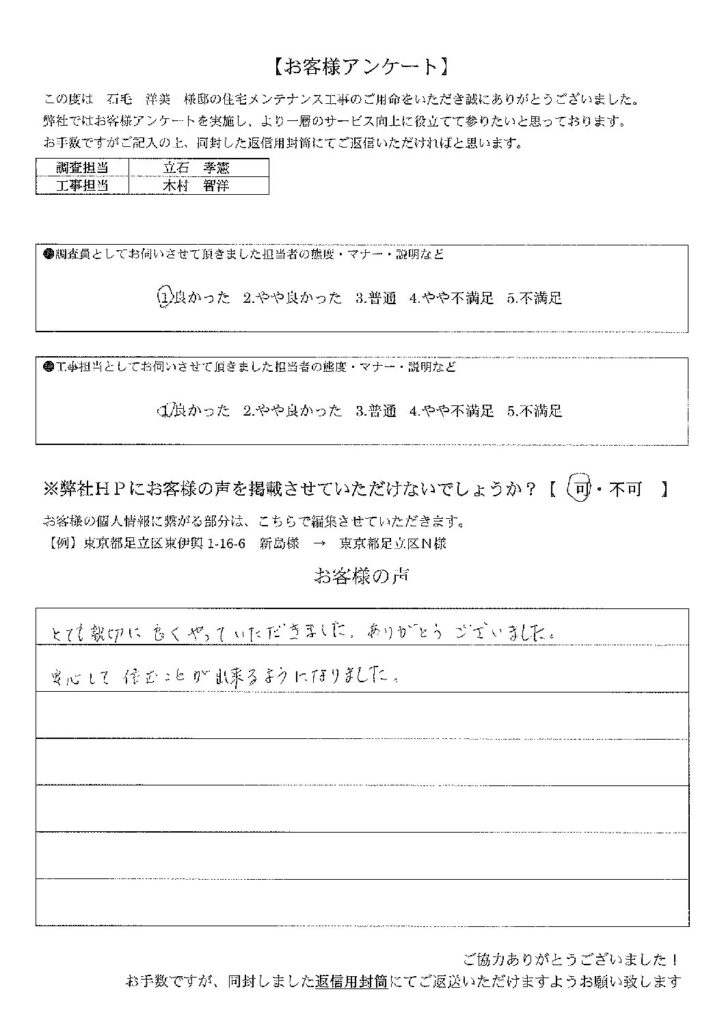 【お客様アンケート】
この度は 石毛 洋美 様邸の住宅メンテナンス工事のご用命をいただき誠にありがとうございました。
弊社ではお客様アンケートを実施し、より一層のサービス向上に役立てて参りたいと思っております。
お手数ですがご記入の上、同封した返信用封筒にてご返信いただければと思います。
調査担当 立石 孝憲
工事担当 木村 智洋
●調査員としてお伺いさせて頂きました担当者の態度・マナー・説明など
1.良かった 2.やや良かった 3.普通 4.やや不満足 5.不満足
●工事担当としてお伺いさせて頂きました担当者の態度・マナー・説明など
1.良かった 2.やや良かった 3.普通 4.やや不満足 5.不満足
※弊社HPにお客様の声を掲載させていただけないでしょうか？【 可・不可 】
お客様の個人情報に繋がる部分は、こちらで編集させていただきます。
【例】東京都足立区東伊興 1-16-6 新島様 → 東京都足立区N様
お客様の声
とても親切に良くやっていただきました。ありがとうございました。
安心して住むことが出来るようになりました。
ご協力ありがとうございました！
お手数ですが、同封しました返信用封筒にてご返送いただけますようお願い致します